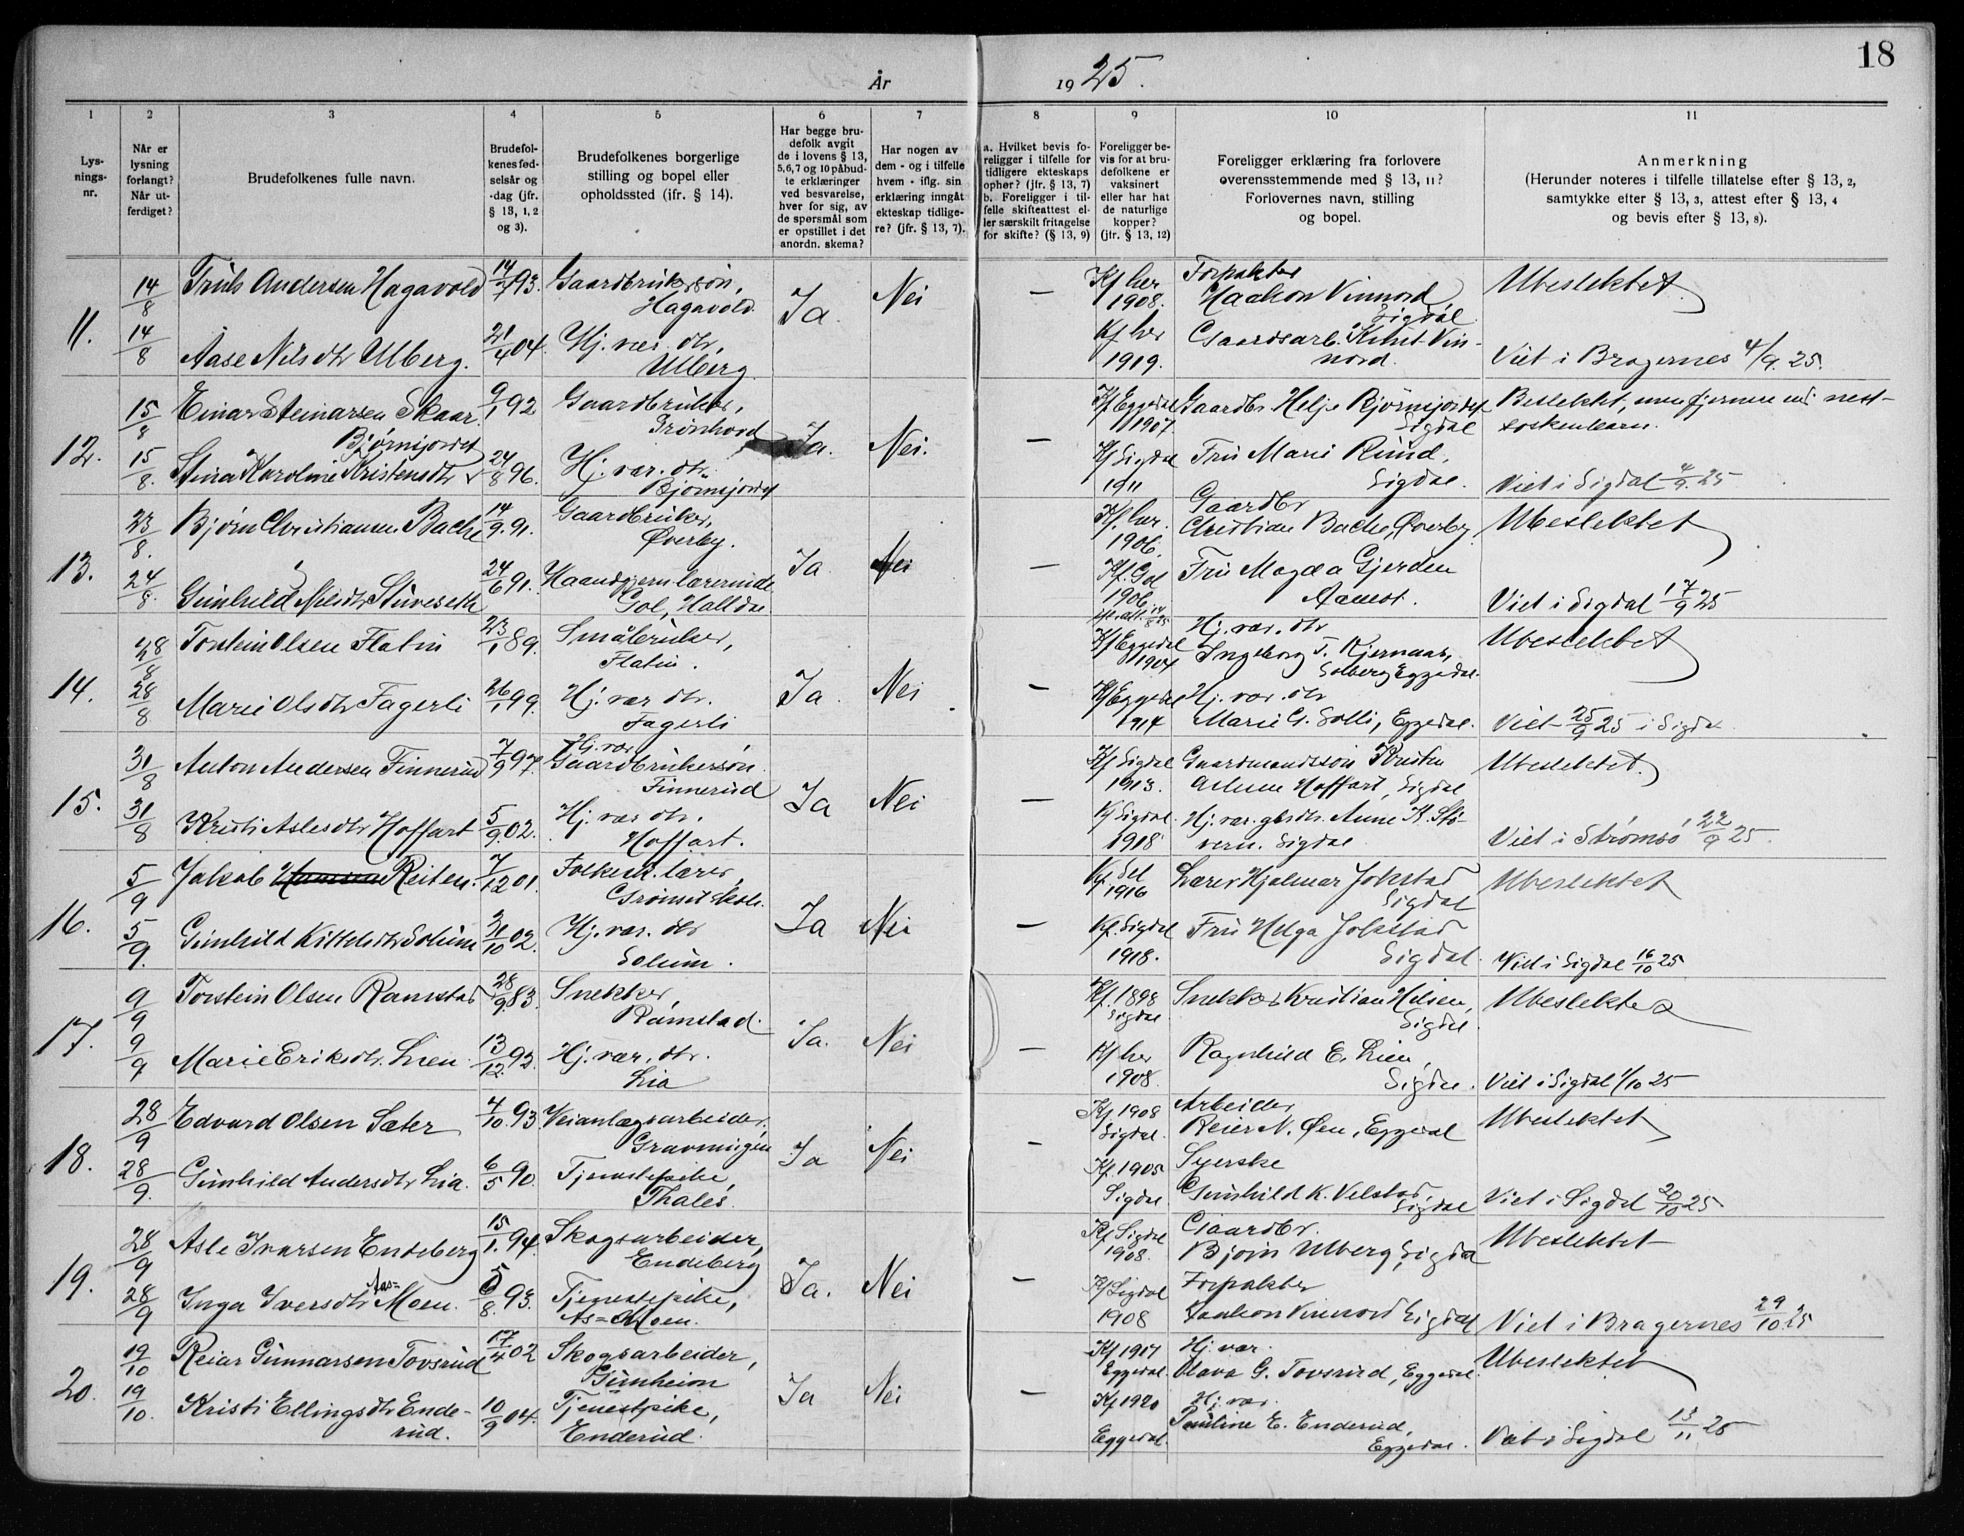 18
År 1925.
1 2 3 4 5 6 7 8 9 10 11
Lys-
nings-
nr.
Når er
lysning
forlangt?
Når ut-
ferdiget?
Brudefolkenes fulle navn.
Brudefol-
kenes fød-
selsår og
-dag (jfr.
§ 13, 1, 2
og 3).
Brudefolkenes borgerlige
stilling og bopel eller
opholdssted (ifr. § 14).
Har begge bru-
defolk avgit
de i lovens § 13,
5,6,7 og 10 påbud-
te erklæringer
ved besvarelse,
hver for sig, av
de spørsmål som
er opstillet i det
anordn. skema?
Har nogen av
dem - og i tilfelle
hvem - iflg. sin
erklæring inngåt
ekteskap tidlige-
re? (jfr. § 13, 7).
a. Hvilket bevis fo-
religger i tilfelle for
tidligere ekteskaps
ophør? (jfr. § 13, 7)
b. Foreligger i til-
felle skifteattest el-
ler særskilt fritagelse
for skifte? (§ 13, 9)
Foreligger be-
vis for at bru-
defolkene er
vaksinert
eller har hat
de naturlige
kopper?
(jfr. § 13, 12)
Foreligger erklæring fra forlovere
overensstemmende med § 13, 11?
Forlovernes navn, stilling
og bopel.
Anmerkning
(Herunder noteres i tilfelle tillatelse efter § 13, 2,
samtykke efter § 13, 3, attest efter § 13, 4
og bevis efter § 13, 8).
11.
14/8 Truls Andersen Hagavold 93. Gaardbrukersøn,
Hagavold.
Ja. Nei —
Kf her
1908.
Forpakter
Haakon Vinnord,
Sigdal.
Ubeslektet.
14/8 Aase Nilsdtr Ulberg. 21/4 04. Hj. vær. dtr,
Ulberg.
Kf her
1919.
Gaardsarb. Knut Vin-
nord.
Viet i Bragernes 4/9. 25.
12.
15/8 Einar Steinarsen Skaar 9/1 92 Gaardbruker,
Grønhovd
Ja. Nei. —
Kf Eggedal
1907
Gaardbr Helje Bjørnsjordet
Sigdal
Beslektet, men fjernere end nest-
søskenbarn.
Bjørnsjordet
15/8. Stina Karoline Kristensdtr 24/8 96. Hj. vær. dtr.
Bjørnsjordet
Kf Sigdal
1911
Fru Marie Rud,
Sigdal.
Viet i Sigdal 4/9. 25
13.
23/8. Bjørn Christiansen Bache 14/9. 91. Gaardbruker,
Øverby.
Ja Nei —
Kf. her.
1906.
Gaardbr
Christian Bache, Øverby.
Ubeslektet
24/8. Gunhild Nilsdtr Stuveseth 24/6 91. Haandgjern.lærerinde
Gol, Halldal
Kf. Gol
1906
Fru Magda Gjerden
Aamot.
Viet i Sigdal 17/9 25
14.
28/8 Torstein Olsen Flatin 23/1 89. Småbruker,
Flatin.
Ja Nei —
Kf Eggedal
1904
Hj. vær. dtr
Ingeborg T. Kjernaas,
Solberg Eggedal.
Ubeslektet
28/8 Marie Olsdtr Fagerli 26/1 99. Hj. vær dtr.
Fagerli
Kf Eggedal
1914
Hj. vær. dtr
Marie G. Solli, Eggedal.
Viet 25/9 25 i Sigdal
15.
31/8 Anton Andersen Finnerud 7/9 97. Hj. vær
Gaardbrukersøn.
Finnerud
Ja Nei —
Kf Sigdal
1913.
Gaardmandssøn Kristen
Aslesen Hoffart, Sigdal
Ubeslektet.
31/8 Kristi Aslesdtr Hoffart 5/9. 02. Hj. vær dtr.
Hoffart.
Kf Sigdal.
1918
Hj. vær. gbrdtr. Anne K. Stø-
vern. Sigdal
Viet i Strømsø 22/9 25.
16.
5/9 Jakob Hansen Reiten. 7/12 01. Folkesk.lærer,
Grønset skole.
Ja Nei —
1916
Lærer Hjalmar Jokstad
Sigdal
Ubeslektet
5/9. Gunhild Kittelsdtr Solum 31/10 02. Hj. vær. dtr
Solum.
Kf. Sigdal
1918.
Fru Helga Jokstad
Sigdal.
Viet i Sigdal 16/10 25
17.
9/9 Torstein Olsen Ramstad 28/9. 83. Snekker,
Ramstad.
Ja. Nei —
Kf. 1898
Sigdal
Snekker Kristian Helsen,
Sigdal.
Ubeslektet
9/9 Marie Eriksdtr. Lien 13/12. 92. Hj. vær. dtr.
Lia
Kf her
1908.
Ragnhild E. Lien,
Sigdal.
Viet i Sigdal 1/10 25
18.
28/9 Edvard Olsen Sæter 4/10. 93 Veianlægsarbeider,
Gravningen
Ja Nei —
Kf 1908
Sigdal.
Arbeider,
Reier N. Øen, Eggedal
Ubeslektet
28/9. Gunhild Andersdtr Lia. 6/5 90. Tjenestepike,
Thales.
Kf. 1905
Sigdal
Syerske
Gunhild K. Velstad,
Sigdal
Viet i Sigdal 20/10 25
19.
28/9 Asle Ivarsen Endeberg 15/1. 94. Skogsarbeider,
Endeberg
Ja. Nei —
Kf Sigdal
1908.
Gaardbr.
Bjørn Ulberg, Sigdal
Ubeslektet
28/9 Inga Iversdtr Aas=Moen. 93. Tjenestepike,
As=Moen.
Kf Sigdal
1908
Forpakter
Haakon Vinnord Sigdal
Viet i Bragernes 29/10. 25
20.
19/10 Reiar Gunnarsen Tovsrud 17/4 02 Skogsarbeider,
Gunheion
Ja Nei —
Kf 1917
Eggedal.
Hj. vær.
Olava G. Tovsrud, Eggedal.
Ubeslektet
19/10. Kristi Ellingsdtr Ende-
rud.
10/9 04. Tjenestpike,
Enderud.
Kf 1920
Eggedal.
Hj. vær.
Pauline E. Enderud,
Eggedal.
Viet i Sigdal 13/11 25